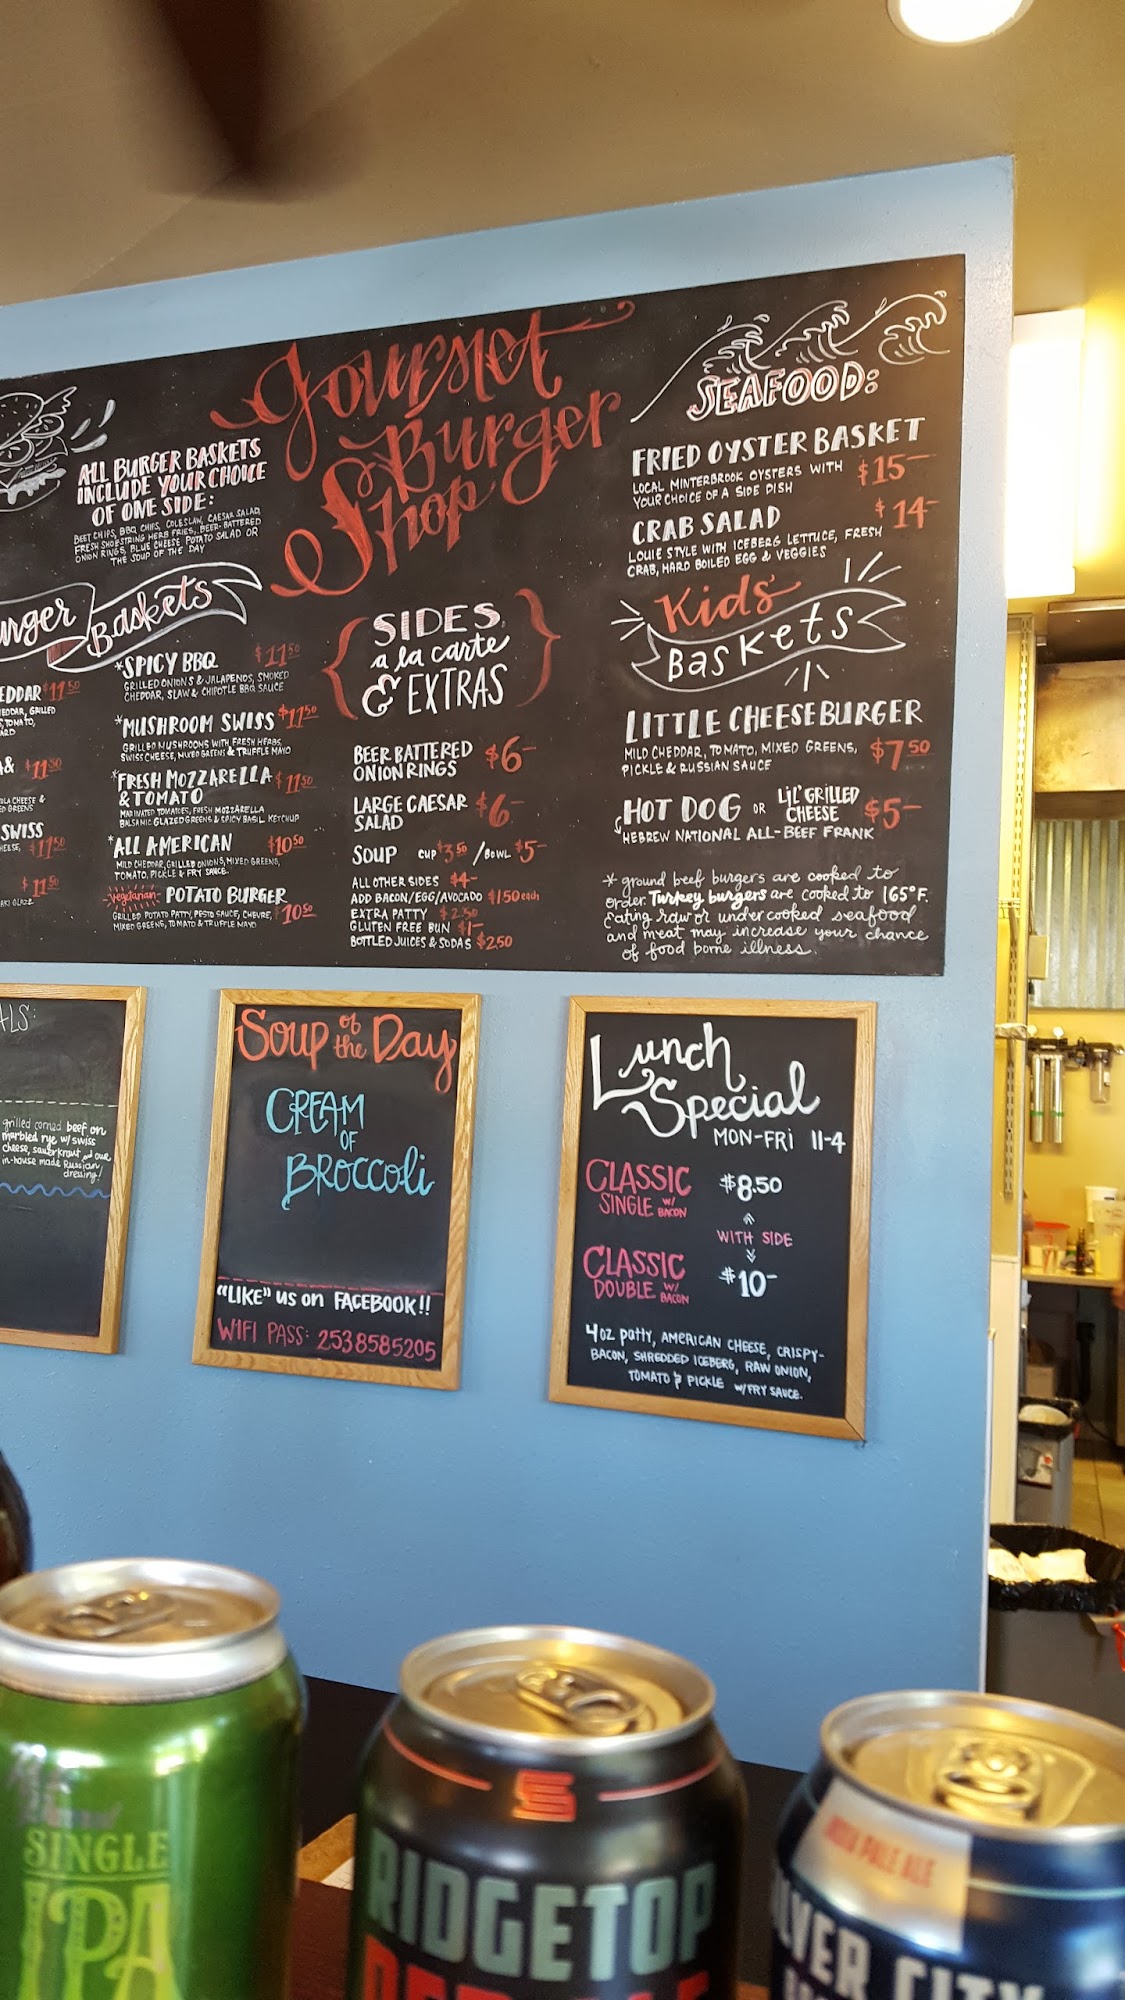 Gourmet
Burger
Shop
ALL BURGER BASKETS
INCLUDE YOUR CHOICE
OF ONE SIDE:
BEET CHIPS, BBQ CHIPS, COLESLAW, CAESAR SALAD,
FRESH SHOESTRING HERB FRIES, BEER-BATTERED
ONION RINGS, BLUE CHEESE POTATO SALAD OR
THE SOUP OF THE DAY
Baskets
EDDAR $11.50
EDDAR, GRILLED
TOMATO,
ARD
& $11.50
CHEESE &
GREENS
SWISS
$11.50
$11.50
*SPICY BBQ $11.50
GRILLED ONIONS & JALAPENOS, SMOKED
CHEDDAR, SLAW & CHIPOTLE BBQ SAUCE
*MUSHROOM SWISS $11.50
GRILLED MUSHROOMS WITH FRESH HERBS,
SWISS CHEESE, MIXED GREENS & TRUFFLE MAYO
*FRESH MOZZARELLA $11.50
& TOMATO
MARINATED TOMATOES, FRESH MOZZARELLA
BALSAMIC GLAZED GREENS & SPICY BASIL KETCHUP
*ALL AMERICAN $10.50
MILD CHEDDAR, GRILLED ONIONS, MIXED GREENS,
TOMATO, PICKLE & FRY SAUCE.
vegetarian- POTATO BURGER
GRILLED POTATO PATTY, PESTO SAUCE, CHEVRE, $10.50
MIXED GREENS, TOMATO & TRUFFLE MAYO
SIDES
a la carte
& EXTRAS
BEER BATTERED $6-
ONION RINGS
LARGE CAESAR $6-
SALAD
SOUP CUP $3.50 /BOWL $5-
ALL OTHER SIDES $4-
ADD BACON/EGG/AVOCADO $1.50 each
EXTRA PATTY $2.50
GLUTEN FREE BUN $1-
BOTTLED JUICES & SODAS $2.50
SEAFOOD:
FRIED OYSTER BASKET
LOCAL MINTERBROOK OYSTERS WITH $15-
YOUR CHOICE OF A SIDE DISH
CRAB SALAD $14-
LOUIE STYLE WITH ICEBERG LETTUCE, FRESH
CRAB, HARD BOILED EGG & VEGGIES
Kids'
Baskets
LITTLE CHEESEBURGER
MILD CHEDDAR, TOMATO, MIXED GREENS, $7.50
PICKLE & RUSSIAN SAUCE
HOT DOG OR LIL' GRILLED CHEESE $5-
HEBREW NATIONAL ALL-BEEF FRANK
* ground beef burgers are cooked to
order. Turkey burgers are cooked to 165°F.
Eating raw or undercooked seafood
and meat may increase your chance
of food borne illness.
ALS:
grilled corned beef on
marbled rye w/ swiss
cheese, sauerkraut and our
in-house made Russian
dressing!
Soup of the Day
CREAM
OF
BROCCOLI
"LIKE" us on FACEBOOK!!
WIFI PASS: 2538585205
Lunch
Special
MON-FRI 11-4
CLASSIC $8.50
SINGLE W/ BACON
WITH SIDE
CLASSIC $10-
DOUBLE W/ BACON
4oz patty, AMERICAN CHEESE, CRISPY-
BACON, SHREDDED ICEBERG, RAW ONION,
TOMATO & PICKLE W/FRY SAUCE.
SINGLE
IPA
S
RIDGETOP
INDIA PALE ALE
LVER CITY